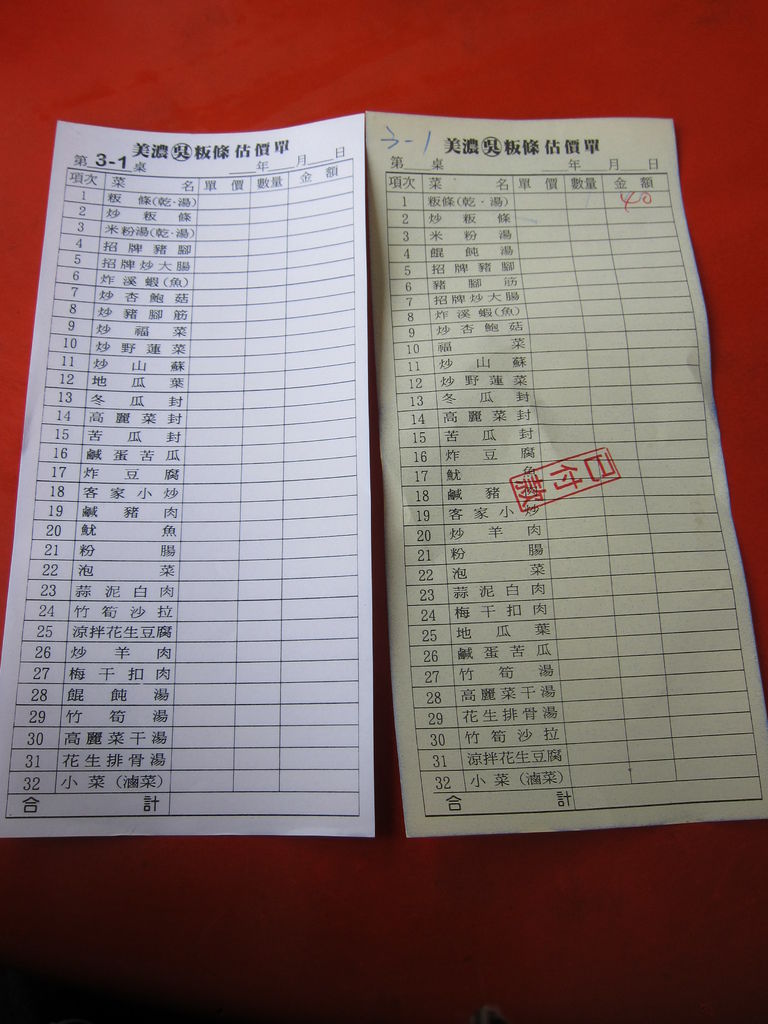 美濃吳粄條估價單
第 3-1 桌 年 月 日
項次 菜名 單價 數量 金額
1 粄條(乾·湯)
2 炒粄條
3 米粉湯(乾·湯)
4 招牌豬腳
5 招牌炒大腸
6 炸溪蝦(魚)
7 炒杏鮑菇
8 炒豬腳筋
9 炒福菜
10 炒野蓮菜
11 炒山蘇
12 地瓜葉
13 冬瓜封
14 高麗菜封
15 苦瓜封
16 鹹蛋苦瓜
17 炸豆腐
18 客家小炒
19 鹹豬肉
20 魷魚
21 粉腸
22 泡菜
23 蒜泥白肉
24 竹筍沙拉
25 涼拌花生豆腐
26 炒羊肉
27 梅干扣肉
28 餛飩湯
29 竹筍湯
30 高麗菜干湯
31 花生排骨湯
32 小菜(滷菜)
合計
3-1
美濃吳粄條估價單
第 桌 年 月 日
項次 菜名 單價 數量 金額
1 粄條(乾·湯) 40
2 炒粄條
3 米粉湯
4 餛飩湯
5 招牌豬腳
6 豬腳筋
7 招牌炒大腸
8 炸溪蝦(魚)
9 炒杏鮑菇
10 福菜
11 炒山蘇
12 炒野蓮菜
13 冬瓜封
14 高麗菜封
15 苦瓜封
16 炸豆腐
17 魷魚
18 鹹豬肉
19 客家小炒
20 炒羊肉
21 粉腸
22 泡菜
23 蒜泥白肉
24 梅干扣肉
25 地瓜葉
26 鹹蛋苦瓜
27 竹筍湯
28 高麗菜干湯
29 花生排骨湯
30 竹筍沙拉
31 涼拌花生豆腐
32 小菜(滷菜)
合計
已付款